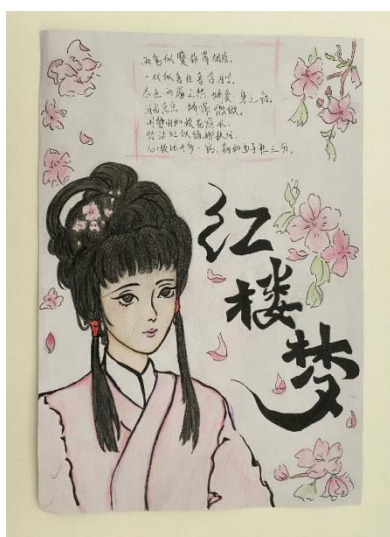 两弯似蹙非蹙烟眉,
一双似喜非喜含情目.
态生两靥之愁 娇袭一身之病.
泪光点点 娇喘微微.
行动处似弱柳扶风.
心较比干多一窍, 病如西子胜三分.
红楼梦